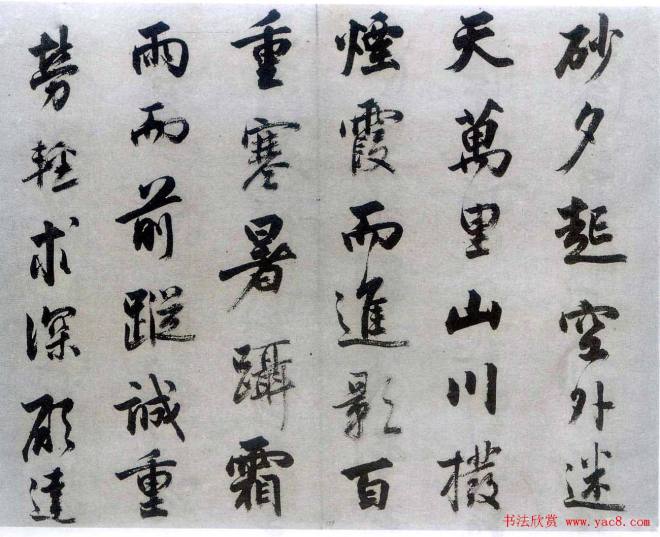 砂夕起空外迷
天萬里山川撥
煙霞而進影百
重寒暑躡霜
雨而前蹤誠重
勞輕求深願達
书法欣赏 www.yac8.com